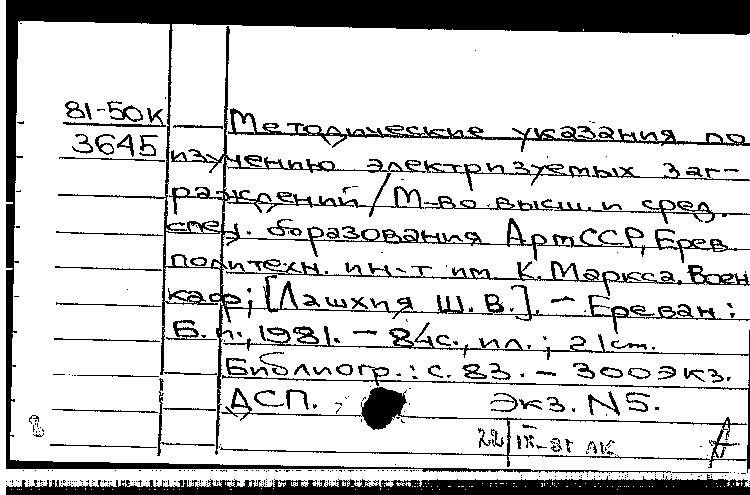 81-50К
3645
Методические указания по
изучению электризуемых заг-
раждений / М-во высш. и сред.
спец. образования АрмССР, Ерев.
политехн. ин-т им. К. Маркса. Воен.
каф; [Лашхия Ш. В.]. - Ереван :
Б. и., 1981. - 84с., ил. ; 21см.
Библиогр.: с. 83. - 300 экз.
ДСП. Экз. N5.
22 IX-81 ЛК